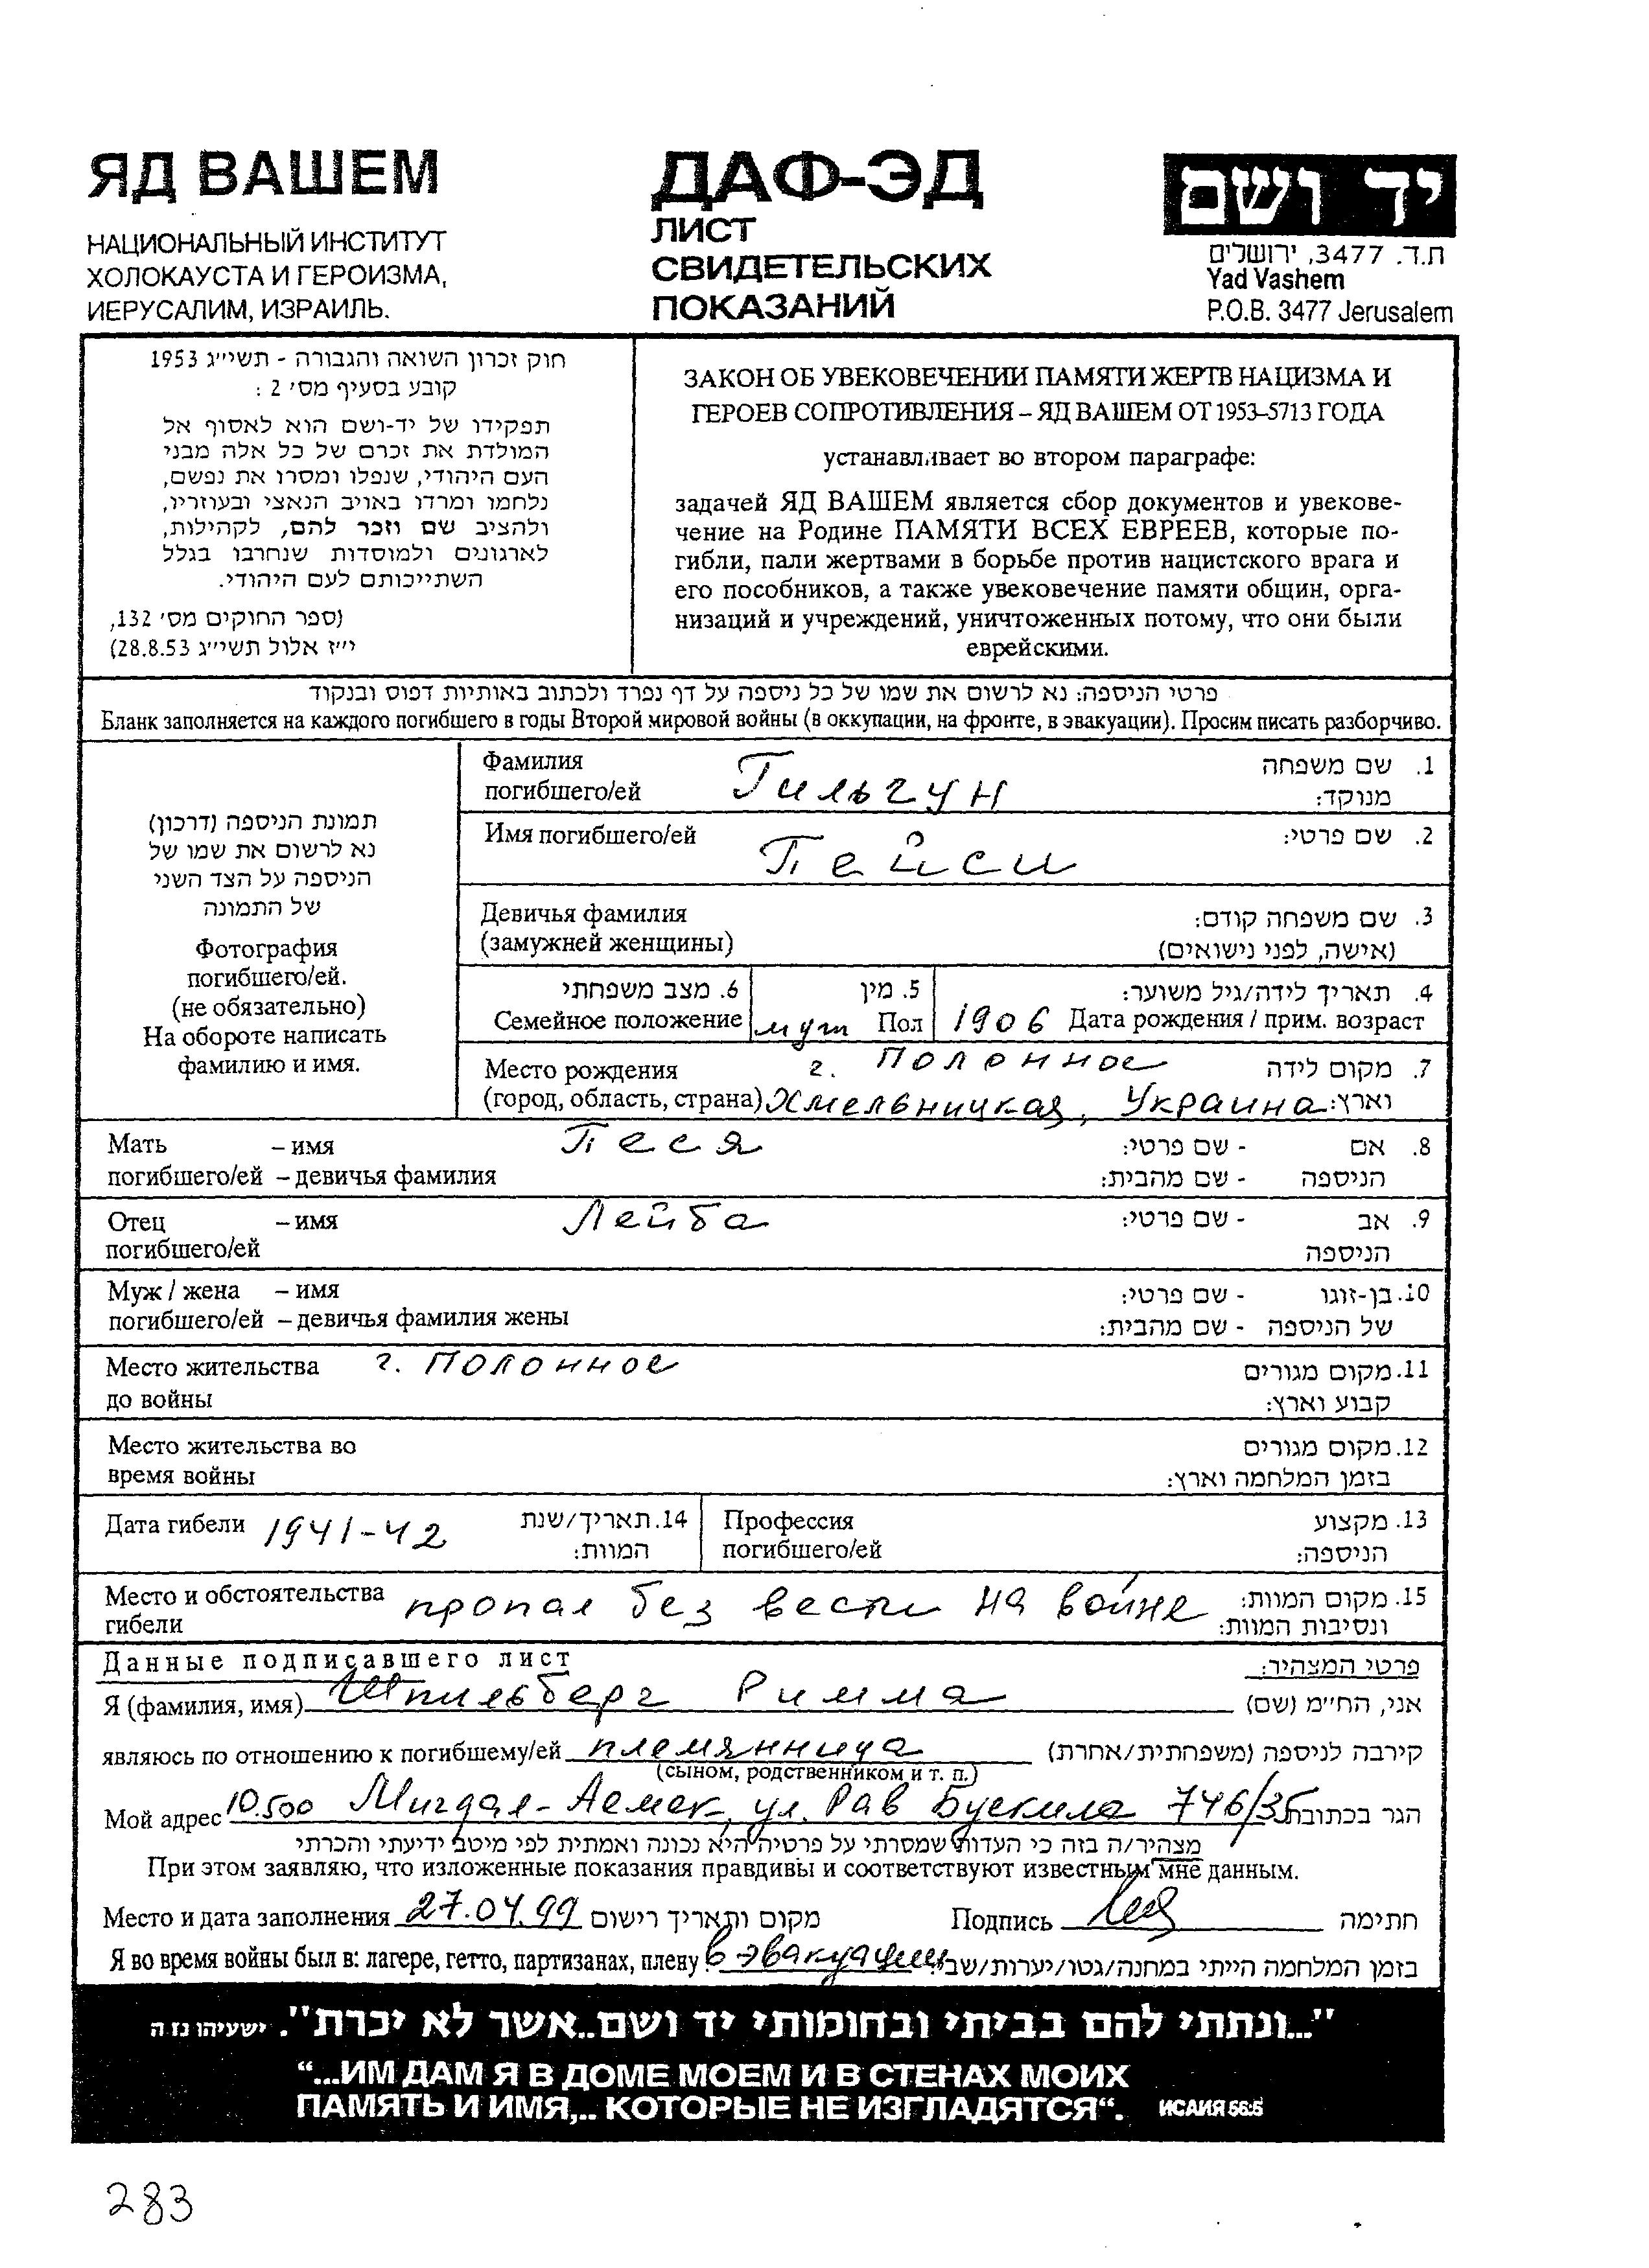 ЯД ВАШЕМ
НАЦИОНАЛЬНЫЙ ИНСТИТУТ
ХОЛОКАУСТА И ГЕРОИЗМА,
ИЕРУСАЛИМ, ИЗРАИЛЬ.
ДАФ-ЭД
ЛИСТ
СВИДЕТЕЛЬСКИХ
ПОКАЗАНИЙ
יד ושם
ת.ד. 3477, ירושלים
Yad Vashem
P.O.B. 3477 Jerusalem
חוק זכרון השואה והגבורה - תשי״ג 1953
קובע בסעיף מס׳ 2 :
תפקידו של יד-ושם הוא לאסוף אל
המולדת את זכרם של כל אלה מבני
העם היהודי, שנפלו ומסרו את נפשם,
נלחמו ומרדו באויב הנאצי ובעוזריו,
ולהציב שם וזכר להם, לקהילות,
לארגונים ולמוסדות שנחרבו בגלל
השתייכותם לעם היהודי.
(ספר החוקים מס׳ 132,
י״ז אלול תשי״ג 28.8.53)
ЗАКОН ОБ УВЕКОВЕЧЕНИИ ПАМЯТИ ЖЕРТВ НАЦИЗМА И
ГЕРОЕВ СОПРОТИВЛЕНИЯ – ЯД ВАШЕМ ОТ 1953–5713 ГОДА
устанавливает во втором параграфе:
задачей ЯД ВАШЕМ является сбор документов и увекове-
чение на Родине ПАМЯТИ ВСЕХ ЕВРЕЕВ, которые по-
гибли, пали жертвами в борьбе против нацистского врага и
его пособников, а также увековечение памяти общин, орга-
низаций и учреждений, уничтоженных потому, что они были
еврейскими.
פרטי הניספה: נא לרשום את שמו של כל ניספה על דף נפרד ולכתוב באותיות דפוס ובנקוד
Бланк заполняется на каждого погибшего в годы Второй мировой войны (в оккупации, на фронте, в эвакуации). Просим писать разборчиво.
תמונת הניספה (דרכון)
נא לרשום את שמו של
הניספה על הצד השני
של התמונה
Фотография
погибшего/ей.
(не обязательно)
На обороте написать
фамилию и имя.
Фамилия погибшего/ей Гильгун 1. שם משפחה מנוקד:
Имя погибшего/ей Пейси 2. שם פרטי:
Девичья фамилия 3. שם משפחה קודם:
(замужней женщины) (אישה, לפני נישואים)
6. מצב משפחתי 5. מין 4. תאריך לידה/גיל משוער:
Семейное положение муж Пол 1906 Дата рождения / прим. возраст
Место рождения г. Полонное 7. מקום לידה
(город, область, страна) Хмельницкая, Украина וארץ:
Мать – имя Песя - שם פרטי: 8. אם
погибшего/ей – девичья фамилия - שם מהבית: הניספה
Отец – имя Лейба - שם פרטי: 9. אב
погибшего/ей הניספה
Муж / жена – имя - שם פרטי: 10. בן-זוגו
погибшего/ей – девичья фамилия жены - שם מהבית: של הניספה
Место жительства г. Полонное 11. מקום מגורים
до войны קבוע וארץ:
Место жительства во 12. מקום מגורים
время войны בזמן המלחמה וארץ:
Дата гибели 1941-42 14. תאריך/שנת המוות:
Профессия 13. מקצוע
погибшего/ей הניספה:
Место и обстоятельства пропал без вести на войне 15. מקום המוות:
гибели ונסיבות המוות:
Данные подписавшего лист פרטי המצהיר:
Я (фамилия, имя) Шпильберг Римма אני, הח״מ (שם)
являюсь по отношению к погибшему/ей племянница קירבה לניספה (משפחתית/אחרת)
(сыном, родственником и т. п.)
Мой адрес 10.500 Мигдал-Аемек, ул. Рав Бускила 746/35 הגר בכתובת
מצהיר/ה בזה כי העדות שמסרתי על פרטיה היא נכונה ואמתית לפי מיטב ידיעתי והכרתי
При этом заявляю, что изложенные показания правдивы и соответствуют известным мне данным.
Место и дата заполнения 27.04.99 מקום ותאריך רישום Подпись חתימה
Я во время войны был в: лагере, гетто, партизанах, плену в эвакуации בזמן המלחמה הייתי במחנה/גטו/יערות/שבי:
"...ונתתי להם בביתי ובחומותי יד ושם..אשר לא יכרת". ישעיהו נו ה
“...ИМ ДАМ Я В ДОМЕ МОЕМ И В СТЕНАХ МОИХ
ПАМЯТЬ И ИМЯ,.. КОТОРЫЕ НЕ ИЗГЛАДЯТСЯ“. ИСАИЯ 56:5
283